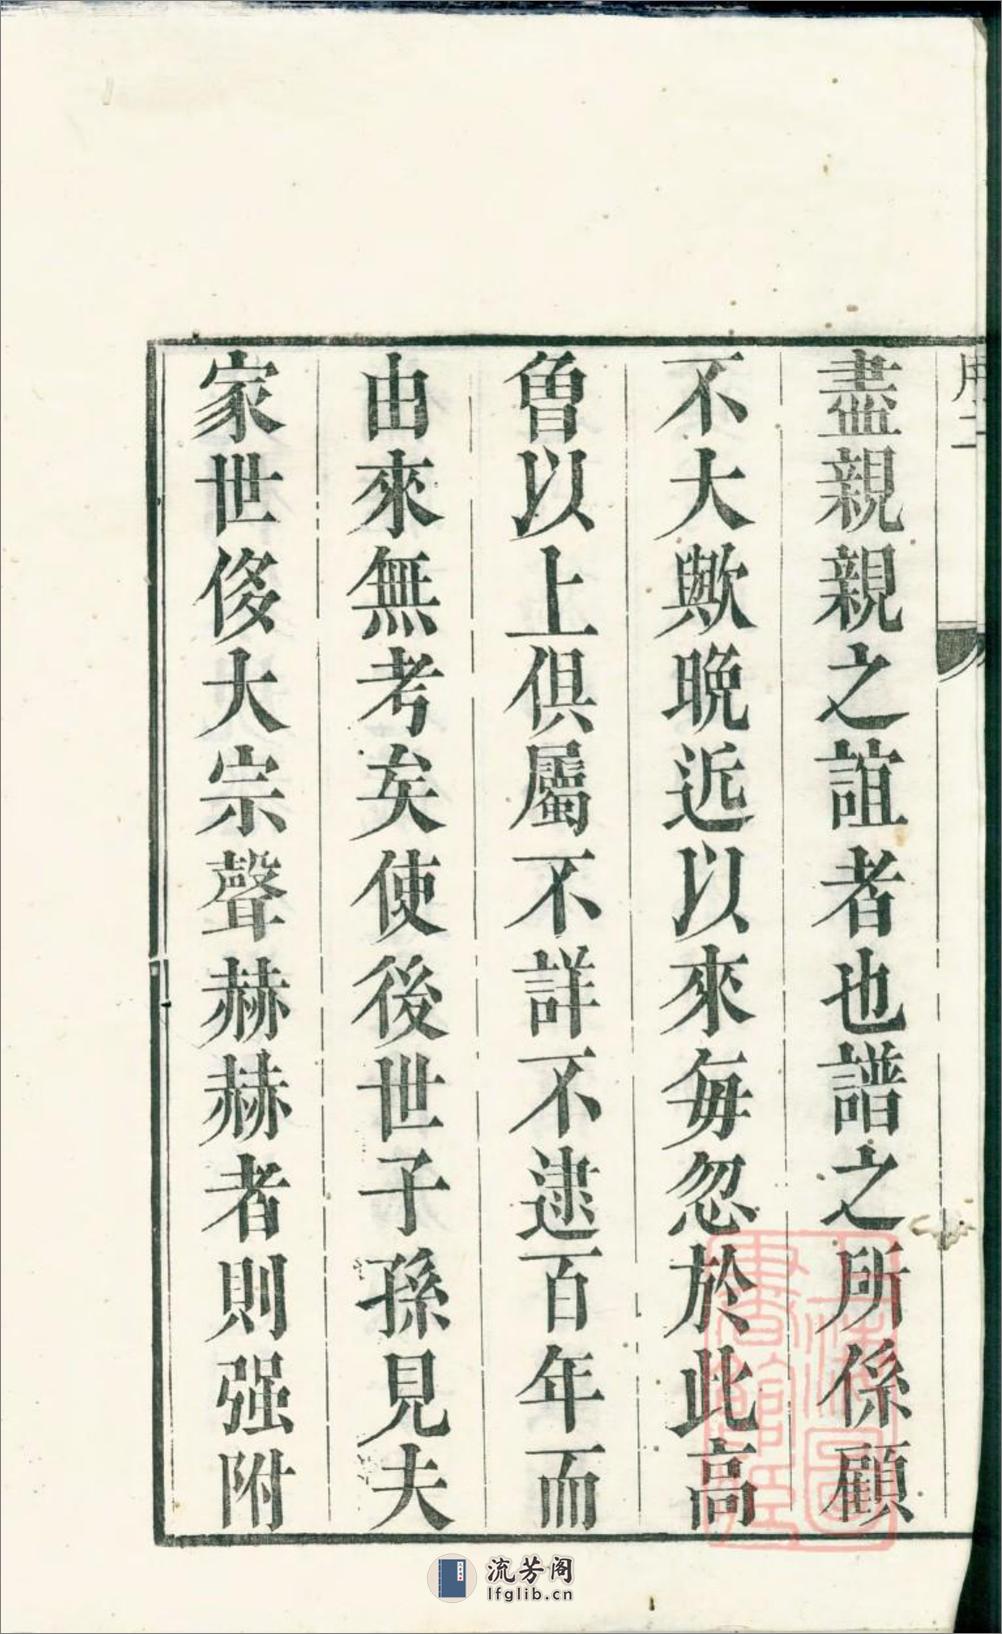 序二
盡親親之誼者也譜之所係顧
不大歟晩近以來每忽於此高
曾以上俱屬不詳不逮百年而
由來無考矣使後世子孫見夫
家世侈大宗聲赫赫者則强附
流芳阁
lfglib.cn